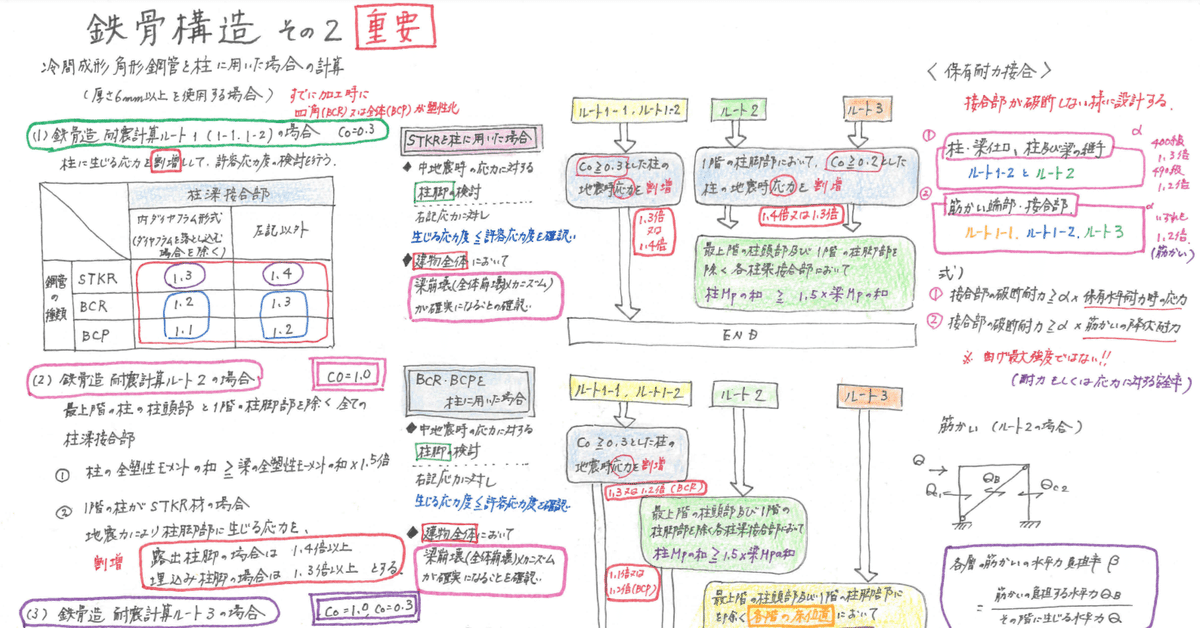 鉄骨構造 その2 重要
冷間成形角形鋼管を柱に用いた場合の計算
(厚さ6mm以上を使用する場合) すでに加工時に
四角(BCR)又は全体(BCP)が塑性化
(1) 鉄骨造 耐震計算ルート1 (1-1. 1-2) の場合 Co=0.3
柱に生じる応力を割増しして、許容応力度の検討を行う。
柱梁接合部
内ダイヤフラム形式
(ダイヤフラムを落とし込む
場合を除く)
左記以外
鋼管の種類
STKR 1.3 1.4
BCR 1.2 1.3
BCP 1.1 1.2
(2) 鉄骨造 耐震計算ルート2の場合 CO=1.0
最上階の柱の柱頭部と1階の柱脚部を除く全ての
柱梁接合部
① 柱の全塑性モーメントの和 ≧ 梁の全塑性モーメントの和×1.5倍
② 1階の柱がSTKR材の場合
地震力により柱脚部に生じる応力を、
割増
露出柱脚の場合は 1.4倍以上
埋込み柱脚の場合は 1.3倍以上 とする。
(3) 鉄骨造 耐震計算ルート3の場合 Co=1.0 Co=0.3
STKRを柱に用いた場合
◆中地震時の応力に対する
柱脚の検討
右記応力に対し
生じる応力度≦許容応力度を確認。
◆建物全体において
梁崩壊(全体崩壊)メカニズム)
が確実になることの確認。
BCR・BCPを
柱に用いた場合
◆中地震時の応力に対する
柱脚の検討
右記応力に対し
生じる応力度≦許容応力度を確認
◆建物全体において
梁崩壊(全体崩壊)メカニズム
が確実になることを確認。
ルート1-1, ルート1-2
ルート2
ルート3
Co≧0.3とした柱の
地震時応力を割増
1階の柱脚部において、Co≧0.2とした
柱の地震時応力を割増
1.3倍
又は
1.4倍
1.4倍又は1.3倍
最上階の柱頭部及び1階の柱脚部を
除く各柱梁接合部において
柱Mpの和 ≧ 1.5×梁Mpの和
END
ルート1-1, ルート1-2
ルート2
ルート3
Co≧0.3とした柱の
地震時応力を割増
1.3又は1.2倍(BCR)
最上階の柱頭部及び1階の
柱脚部を除く各柱梁接合部において
柱Mpの和≧1.5×梁Mpの和
1.1倍又は
1.2倍(BCP)
最上階の柱頭部及び1階の柱脚部に
を除く各階の床位置において
〈保有耐力接合〉
接合部が破断しない様に設計する。
① 柱・梁仕口、柱及び梁の継手
ルート1-2 と ルート2
α
400級
1.3倍
490級
1.2倍
② 筋かい端部・接合部
ルート1-1、ルート1-2、ルート3
α
いずれも
1.2倍
(筋かい)
式)
① 接合部の破断耐力≧α×保有水平耐力時の応力
② 接合部の破断耐力≧α×筋かいの降伏耐力
※ 曲げ最大強度ではない!!
(耐力もしくは応力に対する安全率)
筋かい (ルート2の場合)
Q
Qc1
QB
Qc2
各層の筋かいの水平力負担率β
= 筋かいの負担する水平力QB
その階に生じる水平力Q